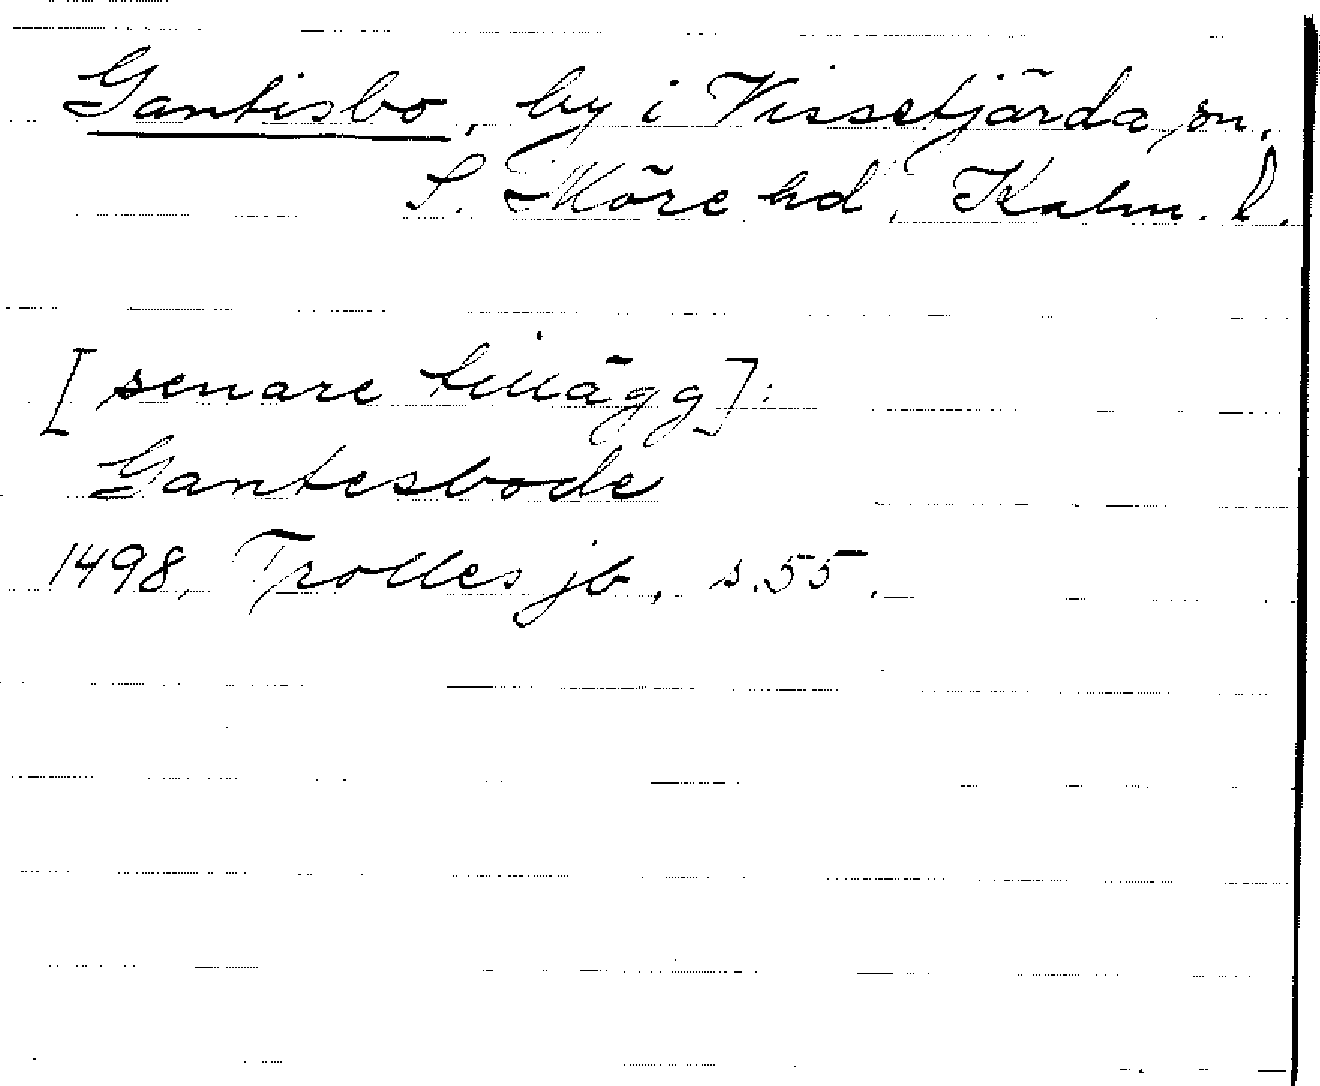 Gantisbo, by i Vissefjärda sn,
S. Möre hd, Kalm. l.
[senare tillägg]:
Gantesbode
1498, Trolles jb, s.55.